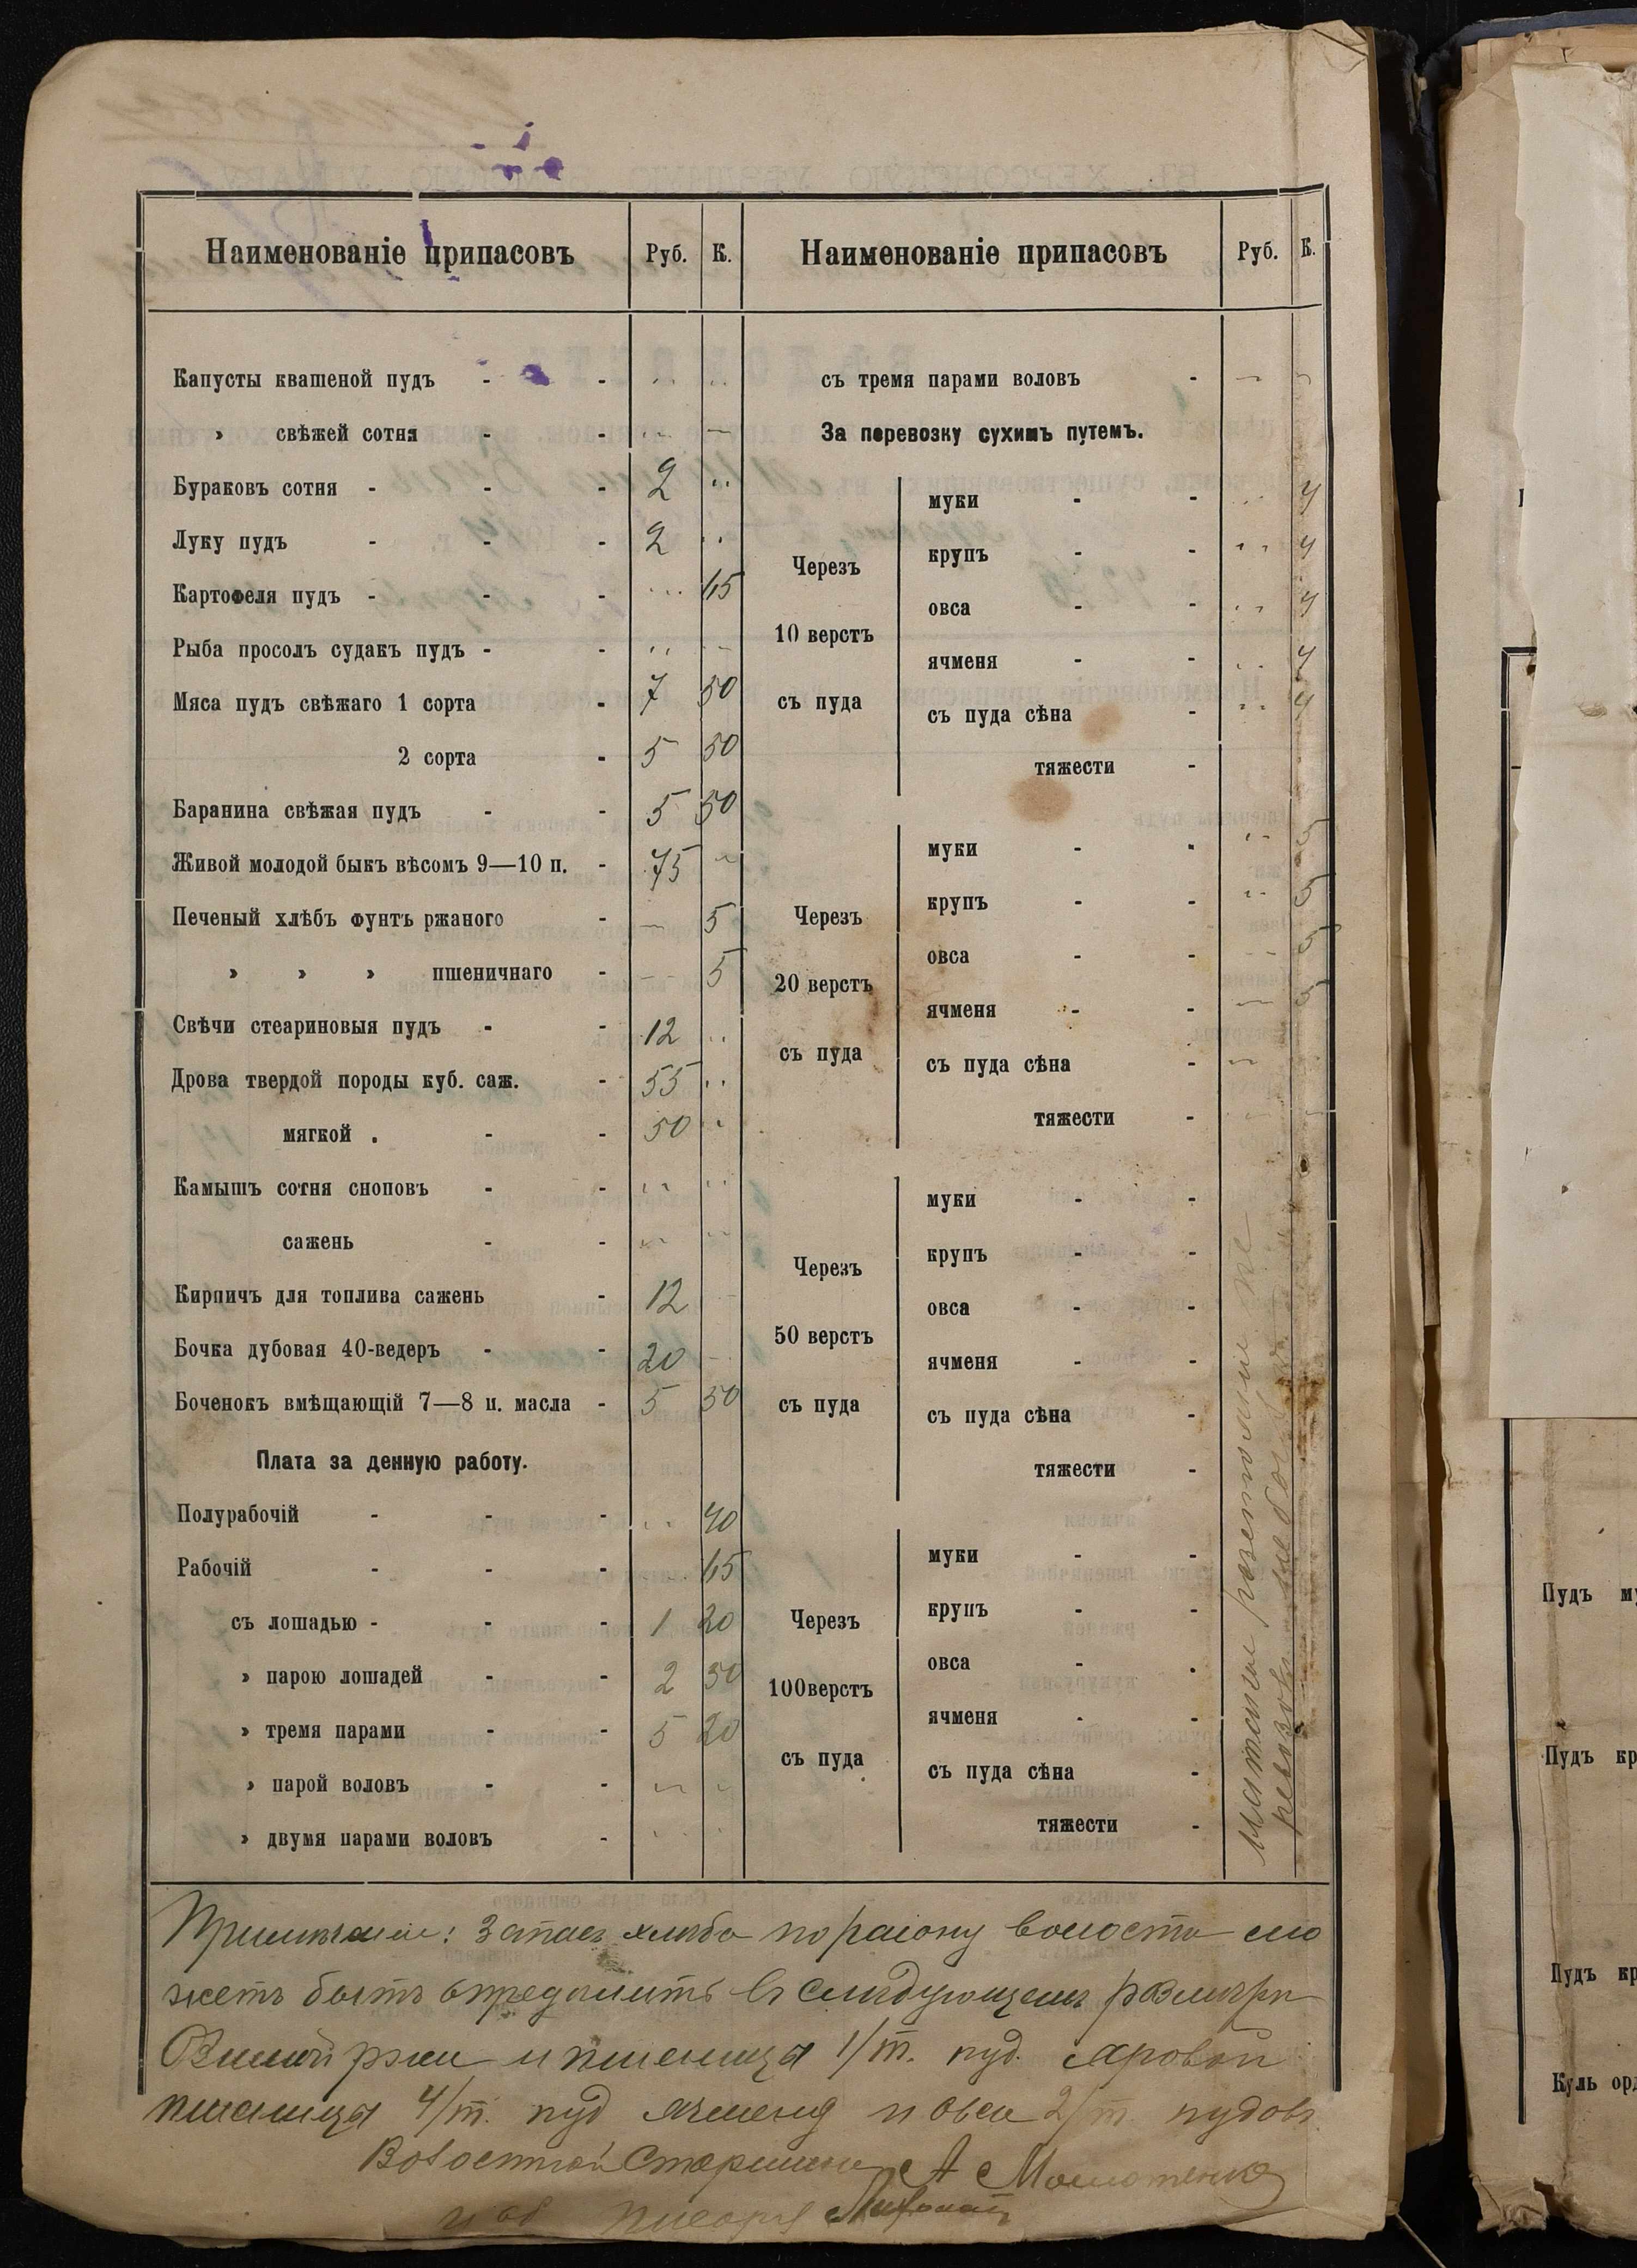 Наименованіе припасовъ Руб. К.
Капусты квашеной пудъ - - -
» свѣжей сотня - -
Бураковъ сотня - - - 2
Луку пудъ - - - 2
Картофеля пудъ - - - 65
Рыба просолъ судакъ пудъ - -
Мяса пудъ свѣжаго 1 сорта - 7 50
2 сорта - 5 50
Баранина свѣжая пудъ - - 5 50
Живой молодой быкъ вѣсомъ 9—10 п. - 75
Печеный хлѣбъ фунтъ ржаного - 5
» » » пшеничнаго - 5
Свѣчи стеариновыя пудъ - - 12
Дрова твердой породы куб. саж. - 55
мягкой . - - 50
Камышъ сотня сноповъ - -
сажень - -
Кирпичъ для топлива сажень - 12
Бочка дубовая 40-ведеръ - - 20
Боченокъ вмѣщающій 7—8 п. масла - 5 50
Плата за денную работу.
Полурабочій - - - 40
Рабочій - - - 65
съ лошадью - - - 1 20
» парою лошадей - - 2 50
» тремя парами - - 5 20
» парой воловъ - -
» двумя парами воловъ -
Наименованіе припасовъ Руб. К.
съ тремя парами воловъ -
За перевозку сухимъ путемъ.
Черезъ
10 верстъ
съ пуда
муки - - 4
крупъ - - 4
овса - - 4
ячменя - - 4
съ пуда сѣна - 4
тяжести -
Черезъ
20 верстъ
съ пуда
муки - - 5
крупъ - - 5
овса - - 5
ячменя - - 5
съ пуда сѣна -
тяжести -
Черезъ
50 верстъ
съ пуда
муки - -
крупъ - -
овса - -
ячменя - -
съ пуда сѣна -
тяжести -
Черезъ
100верстъ
съ пуда
муки - -
крупъ - -
овса - -
ячменя - -
съ пуда сѣна -
тяжести -
разстояніе не
Примѣчаніе: Запасъ хлѣба по раіону волости мо
жетъ быть опредѣлить въ слѣдующемъ размѣрѣ
Озимой ржи и пшеницы 1/т. пуд. яровой
пшеницы 4/т. пуд ячменя и овса 2/т. пудовъ
Волостной Старшина А
Писарь
Пудъ
Пудъ кр
Пудъ кр
Куль